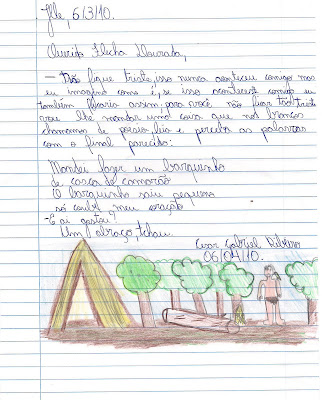 5/3/10.
Querida Flecha Dourada,
— Não fique triste, isso nunca aconteceu comigo mas
eu imagino como é, se isso acontecesse comigo eu
também ficaria assim, para você não ficar tão triste
vou lhe mandar uma coisa que nós brancos
chamamos de poesia, leia e perceba as palavras
com o final parecido:
Mandei fazer um barquinho
de casca de camarão
O barquinho saiu pequeno
só coube meu coração
- E aí gostou?
Um abraço, tchau.
Cesar Gabriel Ribeiro
06/04/10.